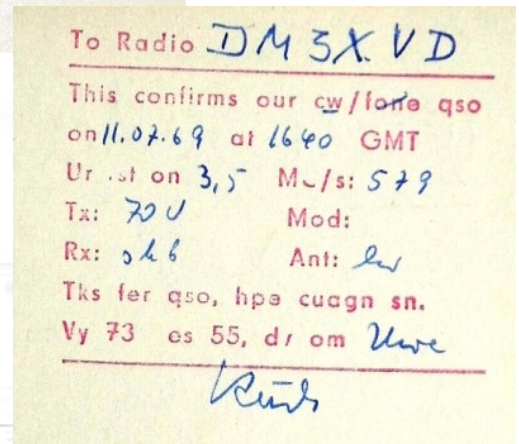 To Radio DM3XVD
This confirms our cw/fone qso
on 11.07.69 at 1640 GMT
Ur rst on 3,5 Mc/s: 579
Tx: 70 U Mod:
Rx: Ant: lw
Tks fer qso, hpe cuagn sn.
Vy 73 es 55, dr om Uwe